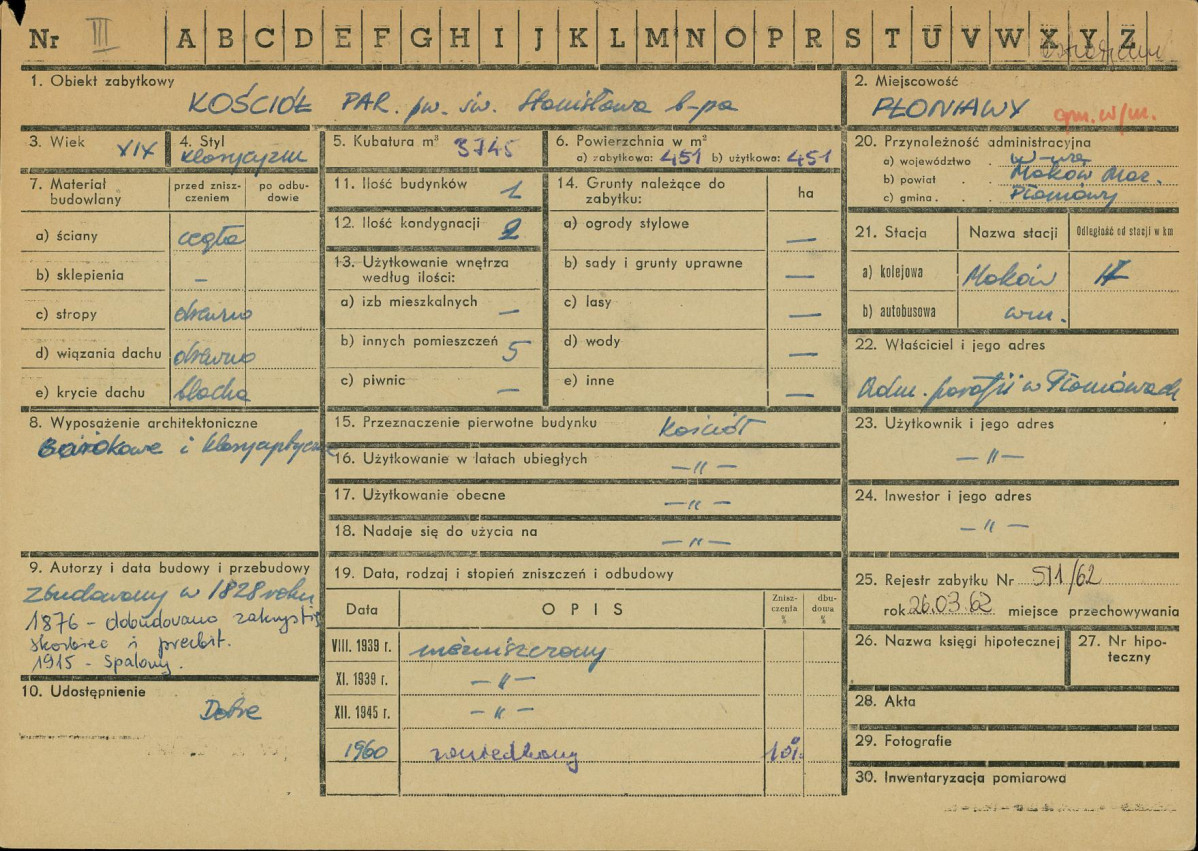 Nr III A B C D E F G H I J K L M N O P R S T U V W X Y Z
1. Obiekt zabytkowy
KOŚCIÓŁ PAR. pw. św. Stanisława b-pa
2. Miejscowość
PŁONIAWY gm. w/m.
3. Wiek XIX
4. Styl klasycyzm
5. Kubatura m³ 3745
6. Powierzchnia w m²
a) zabytkowa: 451 b) użytkowa: 451
7. Materiał budowlany
przed zniszczeniem
po odbudowie
a) ściany cegła
b) sklepienia –
c) stropy drewno
d) wiązania dachu drewno
e) krycie dachu blacha
8. Wyposażenie architektoniczne
barokowe i klasycystyczne
9. Autorzy i data budowy i przebudowy
zbudowany w 1828 roku
1876 – dobudowano zakrystię
skarbiec i prezbit.
1915 – spalony.
10. Udostępnienie
Dobre
11. Ilość budynków 1
12. Ilość kondygnacji 2
13. Użytkowanie wnętrza
według ilości:
a) izb mieszkalnych –
b) innych pomieszczeń 5
c) piwnic –
14. Grunty należące do
zabytku:
ha
a) ogrody stylowe –
b) sady i grunty uprawne –
c) lasy –
d) wody –
e) inne –
15. Przeznaczenie pierwotne budynku kościół
16. Użytkowanie w latach ubiegłych –„–
17. Użytkowanie obecne –„–
18. Nadaje się do użycia na –„–
19. Data, rodzaj i stopień zniszczeń i odbudowy
Data OPIS
Zniszczenia %
dbudowa %
VIII. 1939 r. niezniszczony
XI. 1939 r. –„–
XII. 1945 r. –„–
1960 zaniedbany 10%
20. Przynależność administracyjna
a) województwo . W-wa
b) powiat . . Maków Maz.
c) gmina . . Płoniawy
21. Stacja Nazwa stacji Odległość od stacji w km
a) kolejowa Maków
b) autobusowa w m.
22. Właściciel i jego adres
Adm. parafii w Płoniawach
23. Użytkownik i jego adres
–„–
24. Inwestor i jego adres
–„–
25. Rejestr zabytku Nr 511/62
rok 26.03.62 miejsce przechowywania
26. Nazwa księgi hipotecznej
27. Nr hipoteczny
28. Akta
29. Fotografie
30. Inwentaryzacja pomiarowa